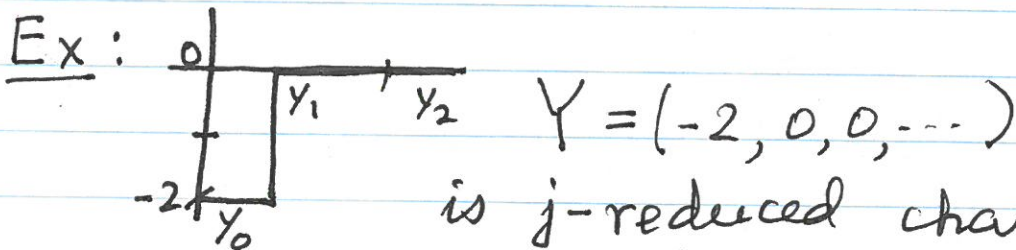 Ex: 0
y₁ y₂ Y = (-2, 0, 0, ...)
-2 y₀ is j-reduced cha